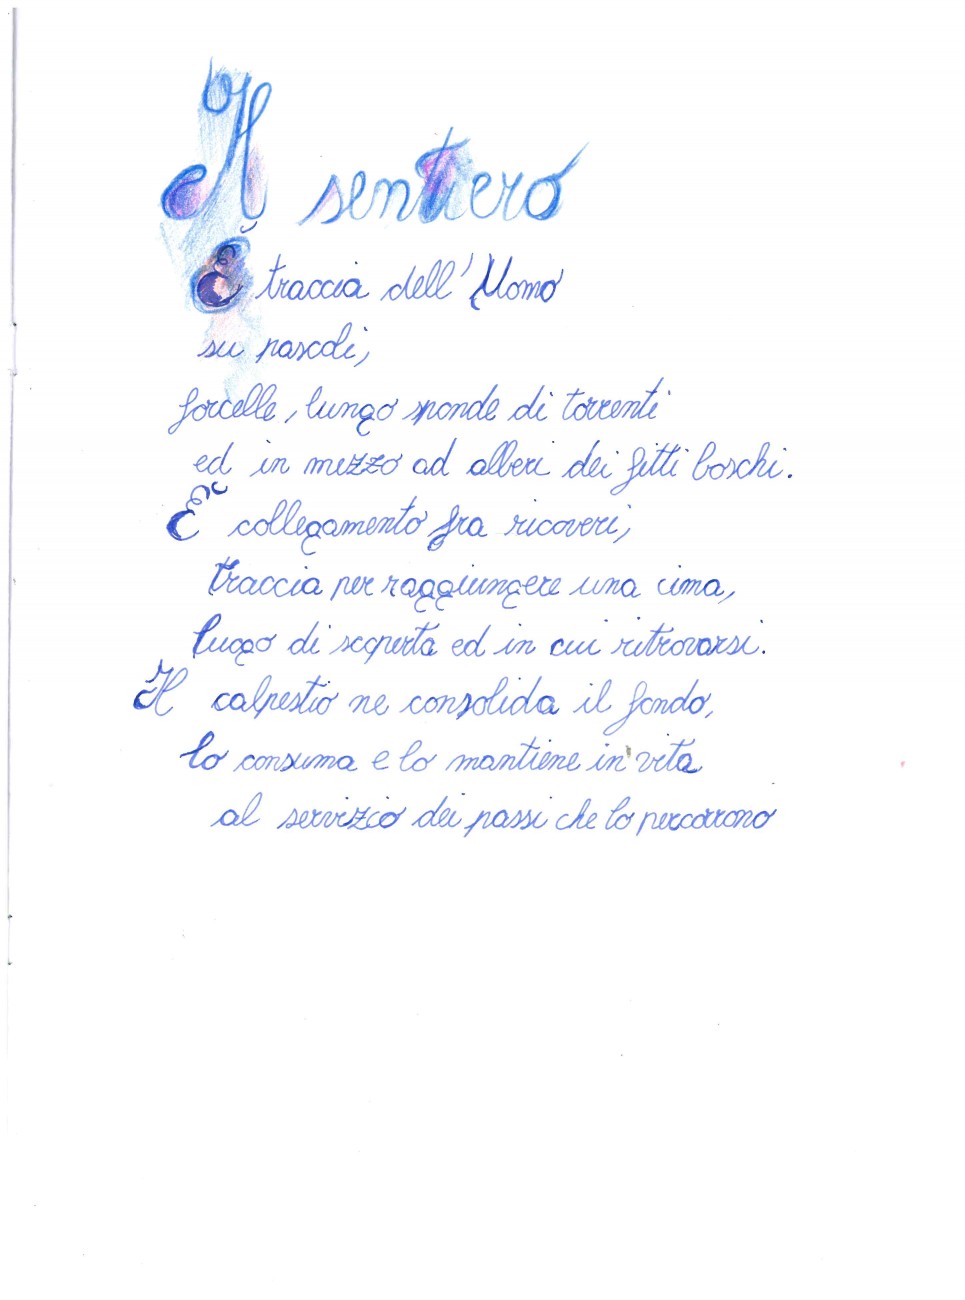 Il sentiero
È traccia dell'Uomo
su pascoli,
forcelle, lungo sponde di torrenti
ed in mezzo ad alberi dei fitti boschi.
È collegamento fra ricoveri,
traccia per raggiungere una cima,
luogo di scoperta ed in cui ritrovarsi.
Il calpestio ne consolida il fondo,
lo consuma e lo mantiene in vita
al servizio dei passi che lo percorrono